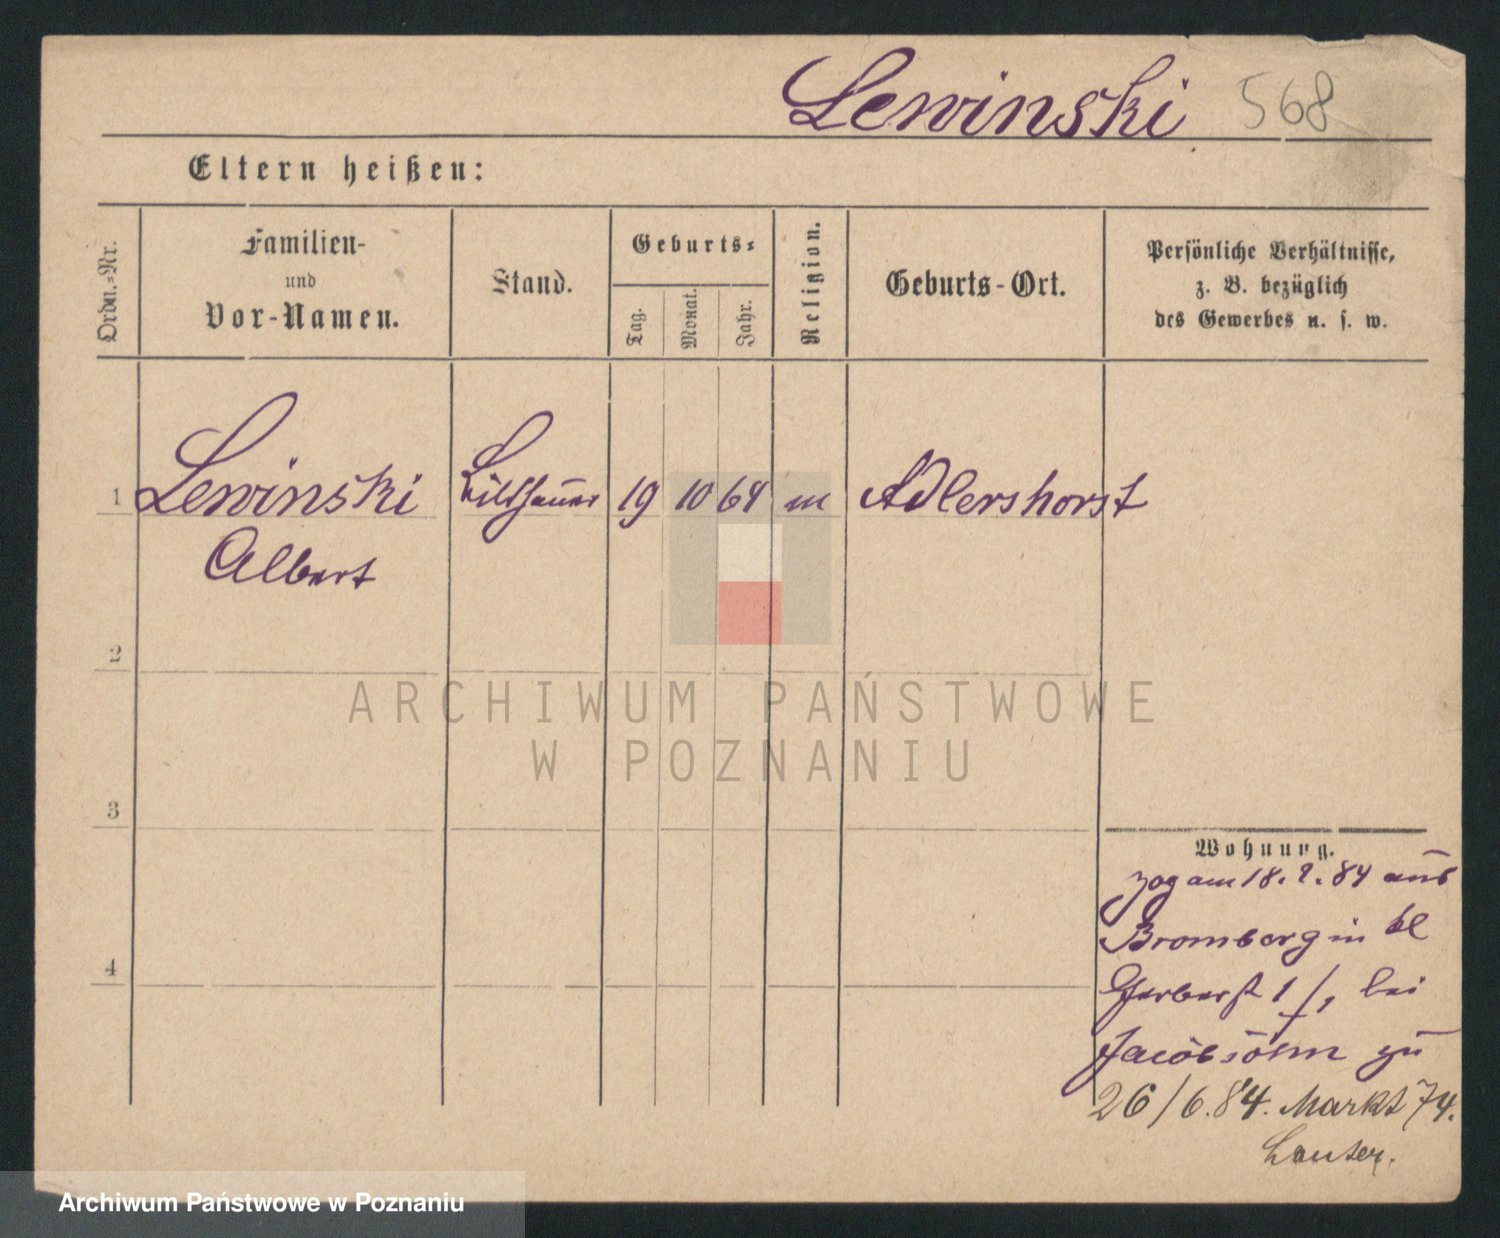 Lewinski 568
Eltern heißen:
Ordn.-Nr.
Familien-
und
Vor-Namen.
Stand.
Geburts-
Tag.
Monat.
Jahr.
Religion.
Geburts-Ort.
Persönliche Verhältnisse,
z. B. bezüglich
des Gewerbes u. s. w.
1 Lewinski Bildhauer 19 10 64 m Adlershorst
Albert
2
ARCHIWUM PAŃSTWOWE
W POZNANIU
3
Wohnung.
zog am 18. 2. 84 aus
Bromberg in kl
Gerberst 1/1 bei
Jacobsohn zu
4
26/6.84. Markt 74.
Archiwum Państwowe w Poznaniu